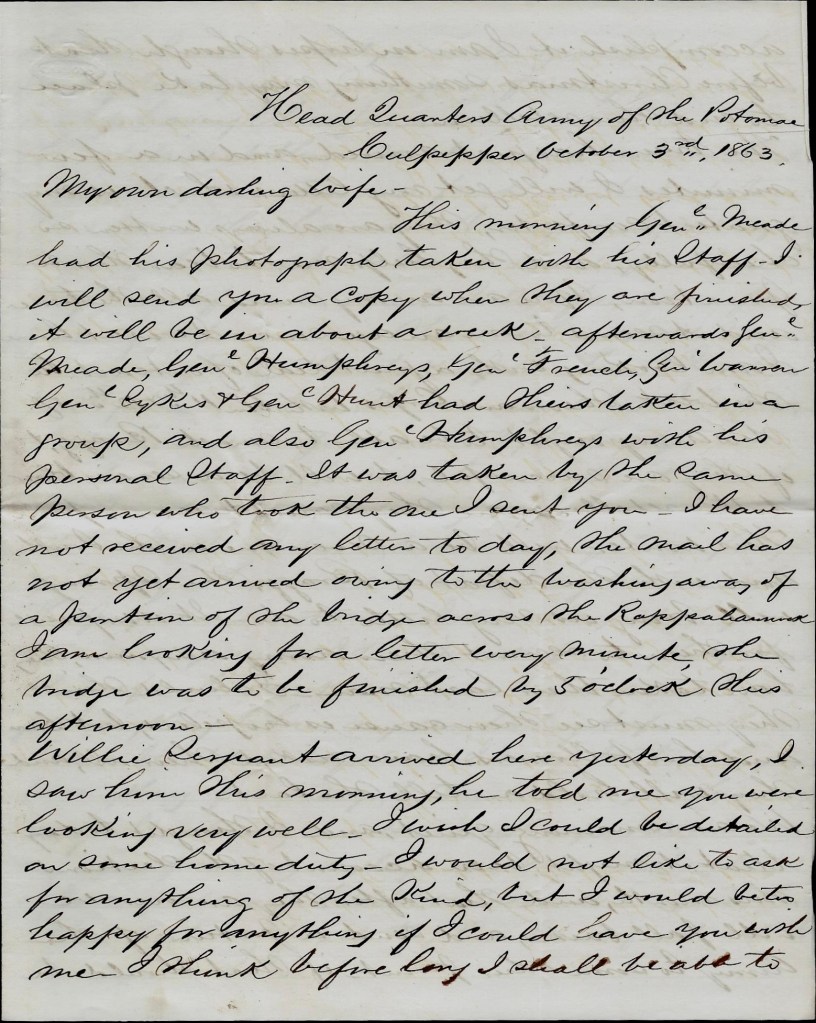 Head Quarters Army of the Potomac
Culpepper October 3rd, 1863.
My own darling wife -
This morning Genl. Meade
had his photograph taken with his Staff - I
will send you a copy when they are finished,
it will be in about a week - afterwards Genl.
Meade, Genl Humphreys, Genl French, Genl Warren
Genl Sykes & Genl Hunt had theirs taken in a
group, and also Genl Humphreys with his
personal Staff - It was taken by the same
person who took the one I sent you - I have
not received any letter to day, the mail has
not yet arrived owing to the washing away of
a portion of the bridge across the Rappahannock
I am looking for a letter every minute, the
bridge was to be finished by 5 o'clock this
afternoon -
Willie arrived here yesterday, I
saw him this morning, he told me you were
looking very well - I wish I could be detailed
on some home duty - I would not like to ask
for anything of the kind, but I would be too
happy for anything if I could have you with
me - I think before long I shall be able to